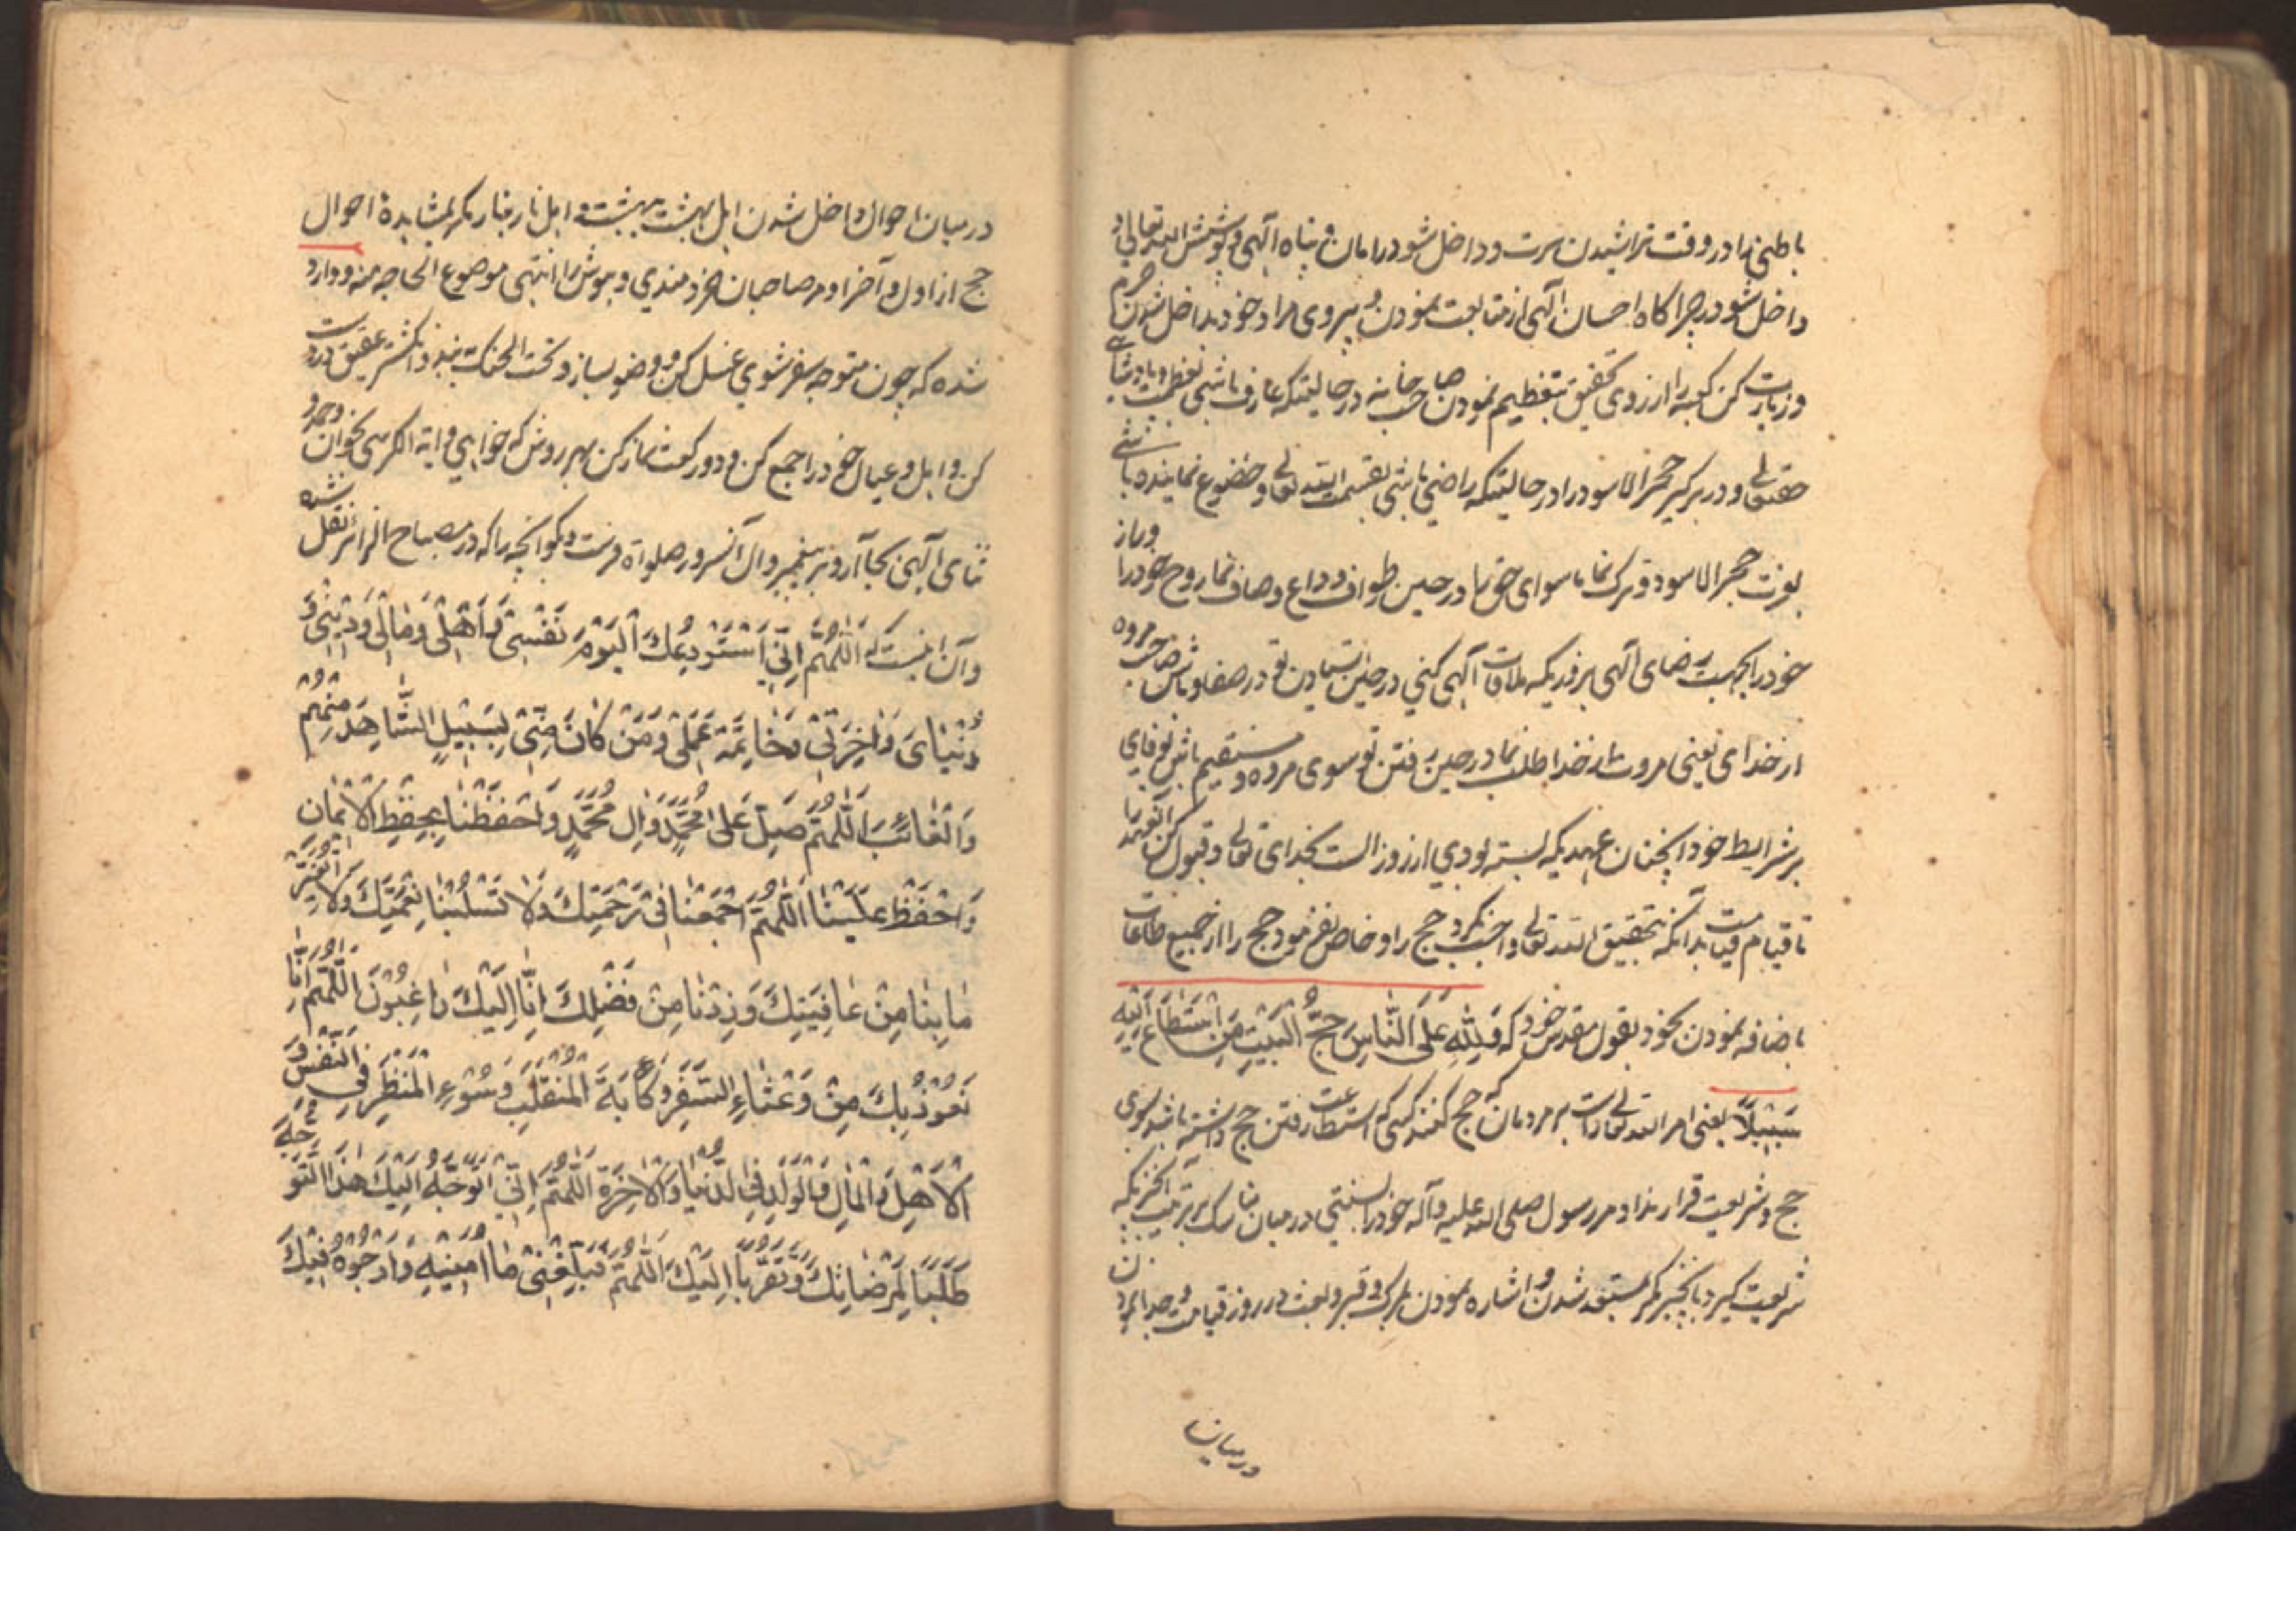 باطنی را در وقت تراشیدن سرت و داخل شو در امان و پناه الهی و پوشش الله تعالی و
داخل شو در چراکاه احسان الهی از متابعت نمودن و پیروی مراد خود بداخل شدن حرم
و زیارت کن کعبه را از روی تحقیق بتعظیم نمودن صاحب خانه در حالیتکه عارف باشی بعظمت و پادشاهی
حقتعالی و در بر کیر حجر الاسود را در حالیتکه راضی باشی بقسمت الله تعالی و خضوع نماینده باشی
بعزت حجر الاسود و ترک نما ما سوای حق را در حین طواف وداع و صاف نما روح خود را و راز
خود را بجهت رضای الهی بروزیکه ملاقات الهی کنی در حین ایستادن تو در صفا و باش صاحب مروه
از خدای یعنی مروت از خدا طلب نما در حین رفتن تو سوی مروه و مستقیم باش بوفای
بر شرایط خود آنچنان عهدیکه بسته بودی از روز الست بخدای تعالی و قبول کن آنعهد را
تا قیام قیامت بدانکه بتحقیق الله تعالی واجب نکرد حج را و خاص نفرمود حج را از جمیع طاعات
باضافه نمودن بخود بقول مقدس خود که وَلِلّٰهِ عَلَى النَّاسِ حِجُّ الْبَیْتِ مَنِ اسْتَطَاعَ اِلَیْهِ
سَبِیْلًا یعنی امر الله تعالی است بر مردمان که حج کنند کسی که استطاعت رفتن حج داشته باشد سوی
حج و شریعت قرار نداد مر رسول صلی الله علیه وآله خود را سنتی در میان مناسک بر ترتیب آنچیزیکه
شریعت کیرد بآنچیز مکر مستعد شدن و اشاره نمودن بمرک و قبر و بعث در روز قیامت و جدا نمودن
درمیان
درمیان احوال داخل شدن اهل بهشت ببهشت و اهل نار بنار مکر بمشاهدة احوال
حج از اول و آخر او مر صاحبان خردمندی و هوش را انتهی موضوع الحاجه منه و وارد
شده که چون متوجه سفر شوی غسل کن و وضو بساز و تحت الحنک ببند و انکشتر عقیق در دست
کن و اهل و عیال خود را جمع کن و دو رکعت نماز کن بهر روش که خواهی و ایة الکرسی بخوان و حمد و
ثنای الهی بجا آر و بر پیغمبر و ال آنسرور صلواة فرست و بکو آنچه را که در مصباح الزائر نقل شده
و آن اینست که اَللّٰهُمَّ اِنِّیْ اَسْتَوْدِعُکَ الْیَوْمَ نَفْسِیْ وَاَهْلِیْ وَمَالِیْ وَدِیْنِیْ وَ
دُنْیَایَ وَاٰخِرَتِیْ وَخَاتِمَةَ عَمَلِیْ وَمَنْ کَانَ مِنِّیْ بِسَبِیْلٍ الشَّاهِدَ مِنْهُمْ
وَالْغَائِبَ اَللّٰهُمَّ صَلِّ عَلٰی مُحَمَّدٍ وَاٰلِ مُحَمَّدٍ وَاحْفَظْنَا بِحِفْظِ الْاِیْمَانِ
وَاحْفَظْ عَلَیْنَا اَللّٰهُمَّ اجْمَعْنَا فِیْ رَحْمَتِکَ وَلَا تَسْلُبْنَا نِعْمَتَکَ وَلَا تُغَیِّرْ
مَا بِنَا مِنْ عَافِیَتِکَ وَزِدْنَا مِنْ فَضْلِکَ اِنَّا اِلَیْکَ رَاغِبُوْنَ اَللّٰهُمَّ اِنَّا
نَعُوْذُ بِکَ مِنْ وَعْثَاءِ السَّفَرِ وَکَاٰبَةِ الْمُنْقَلَبِ وَسُوْءِ الْمَنْظَرِ فِی النَّفْسِ وَ
الْاَهْلِ وَالْمَالِ وَالْوَلَدِ فِی الدُّنْیَا وَالْاٰخِرَةِ اَللّٰهُمَّ اِنِّیْ اَتَوَجَّهُ اِلَیْکَ هٰذَا التَّوَجُّهَ
طَلَبًا لِمَرْضَاتِکَ وَتَقَرُّبًا اِلَیْکَ اَللّٰهُمَّ فَبَلِّغْنِیْ مَا اُؤَمِّلُهُ وَاَرْجُوْهُ فِیْکَ